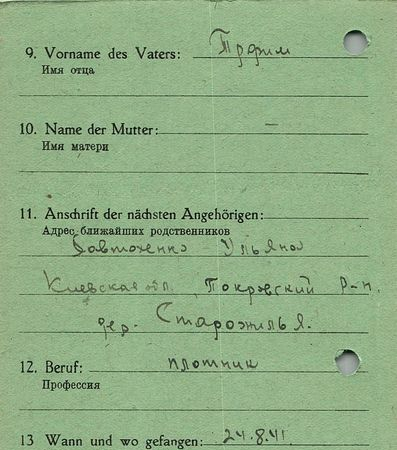 9. Vorname des Vaters: Трофим
Имя отца
10. Name der Mutter: —
Имя матери
11. Anschrift der nächsten Angehörigen:
Адрес ближайших родственников
Ульяна
Киевская обл., Покровский р-н.
дер.
12. Beruf: плотник
Профессия
13 Wann und wo gefangen: 24.8.41